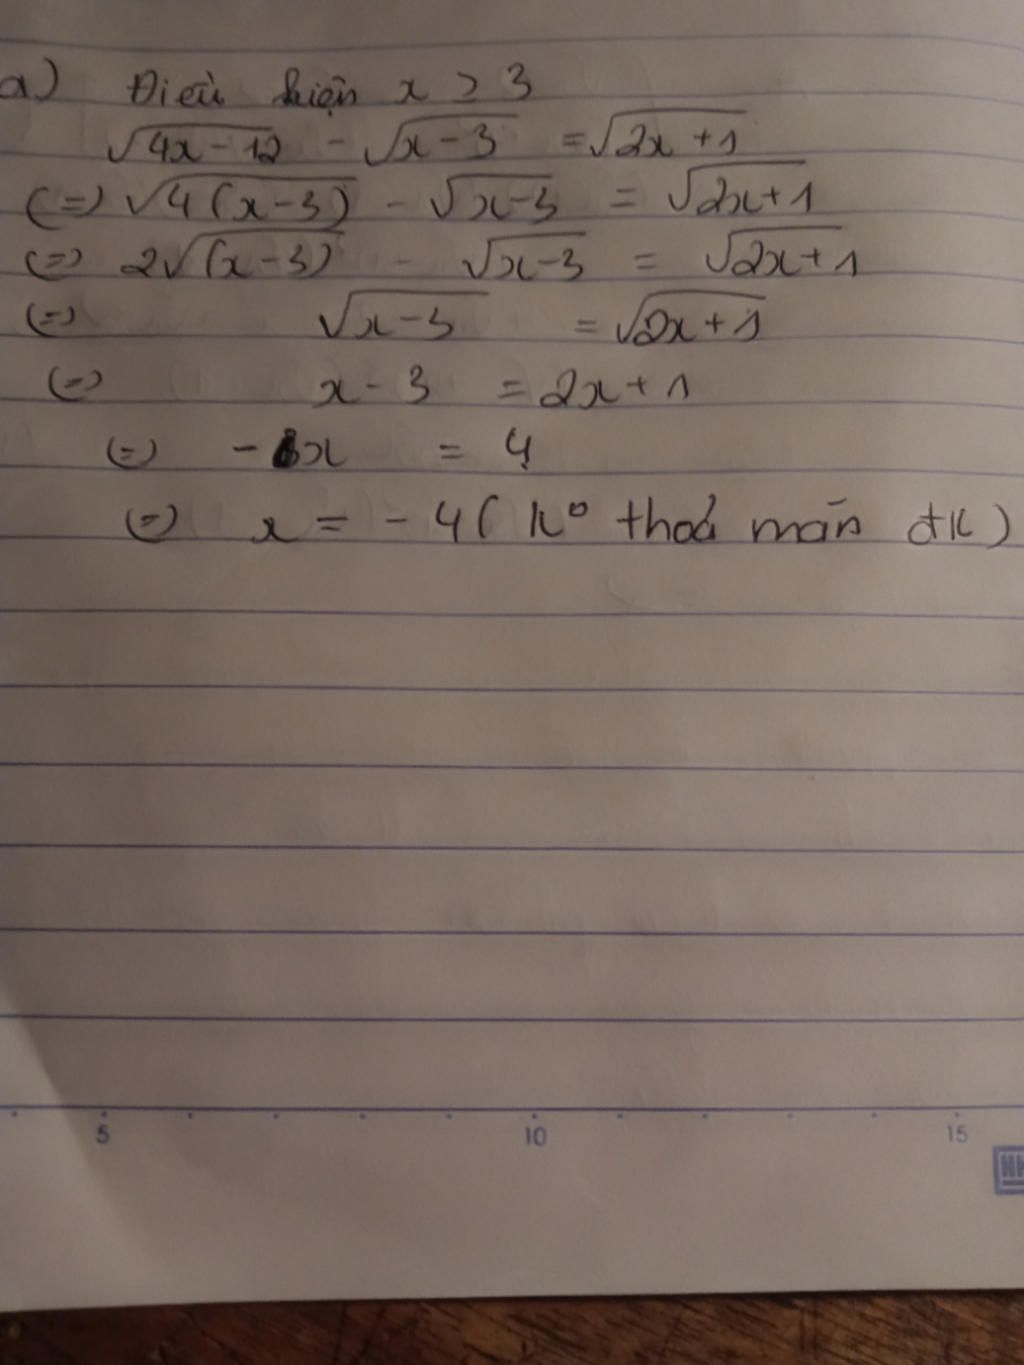 a) Điều kiện x ≥ 3
√4x-12 - √x-3 = √2x+1
(=) √4(x-3) - √x-3 = √2x+1
(=) 2√(x-3) - √x-3 = √2x+1
(=) √x-3 = √2x+1
(=) x-3 = 2x+1
(=) -x = 4
(=) x = -4 (K° thoả mãn đK)
5 10 15